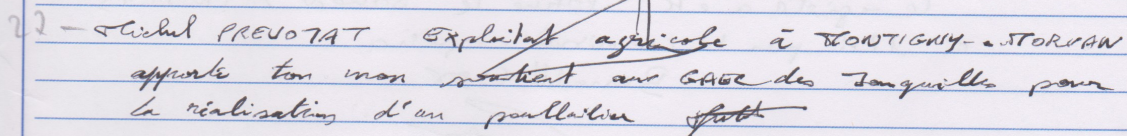 27 - Michel PREVOTAT Exploitat agricole à MONTIGNY-.MORVAN
apporte ton mon soutient aux GAEC des Jonquilles pour
la réalisation d'un poullailier